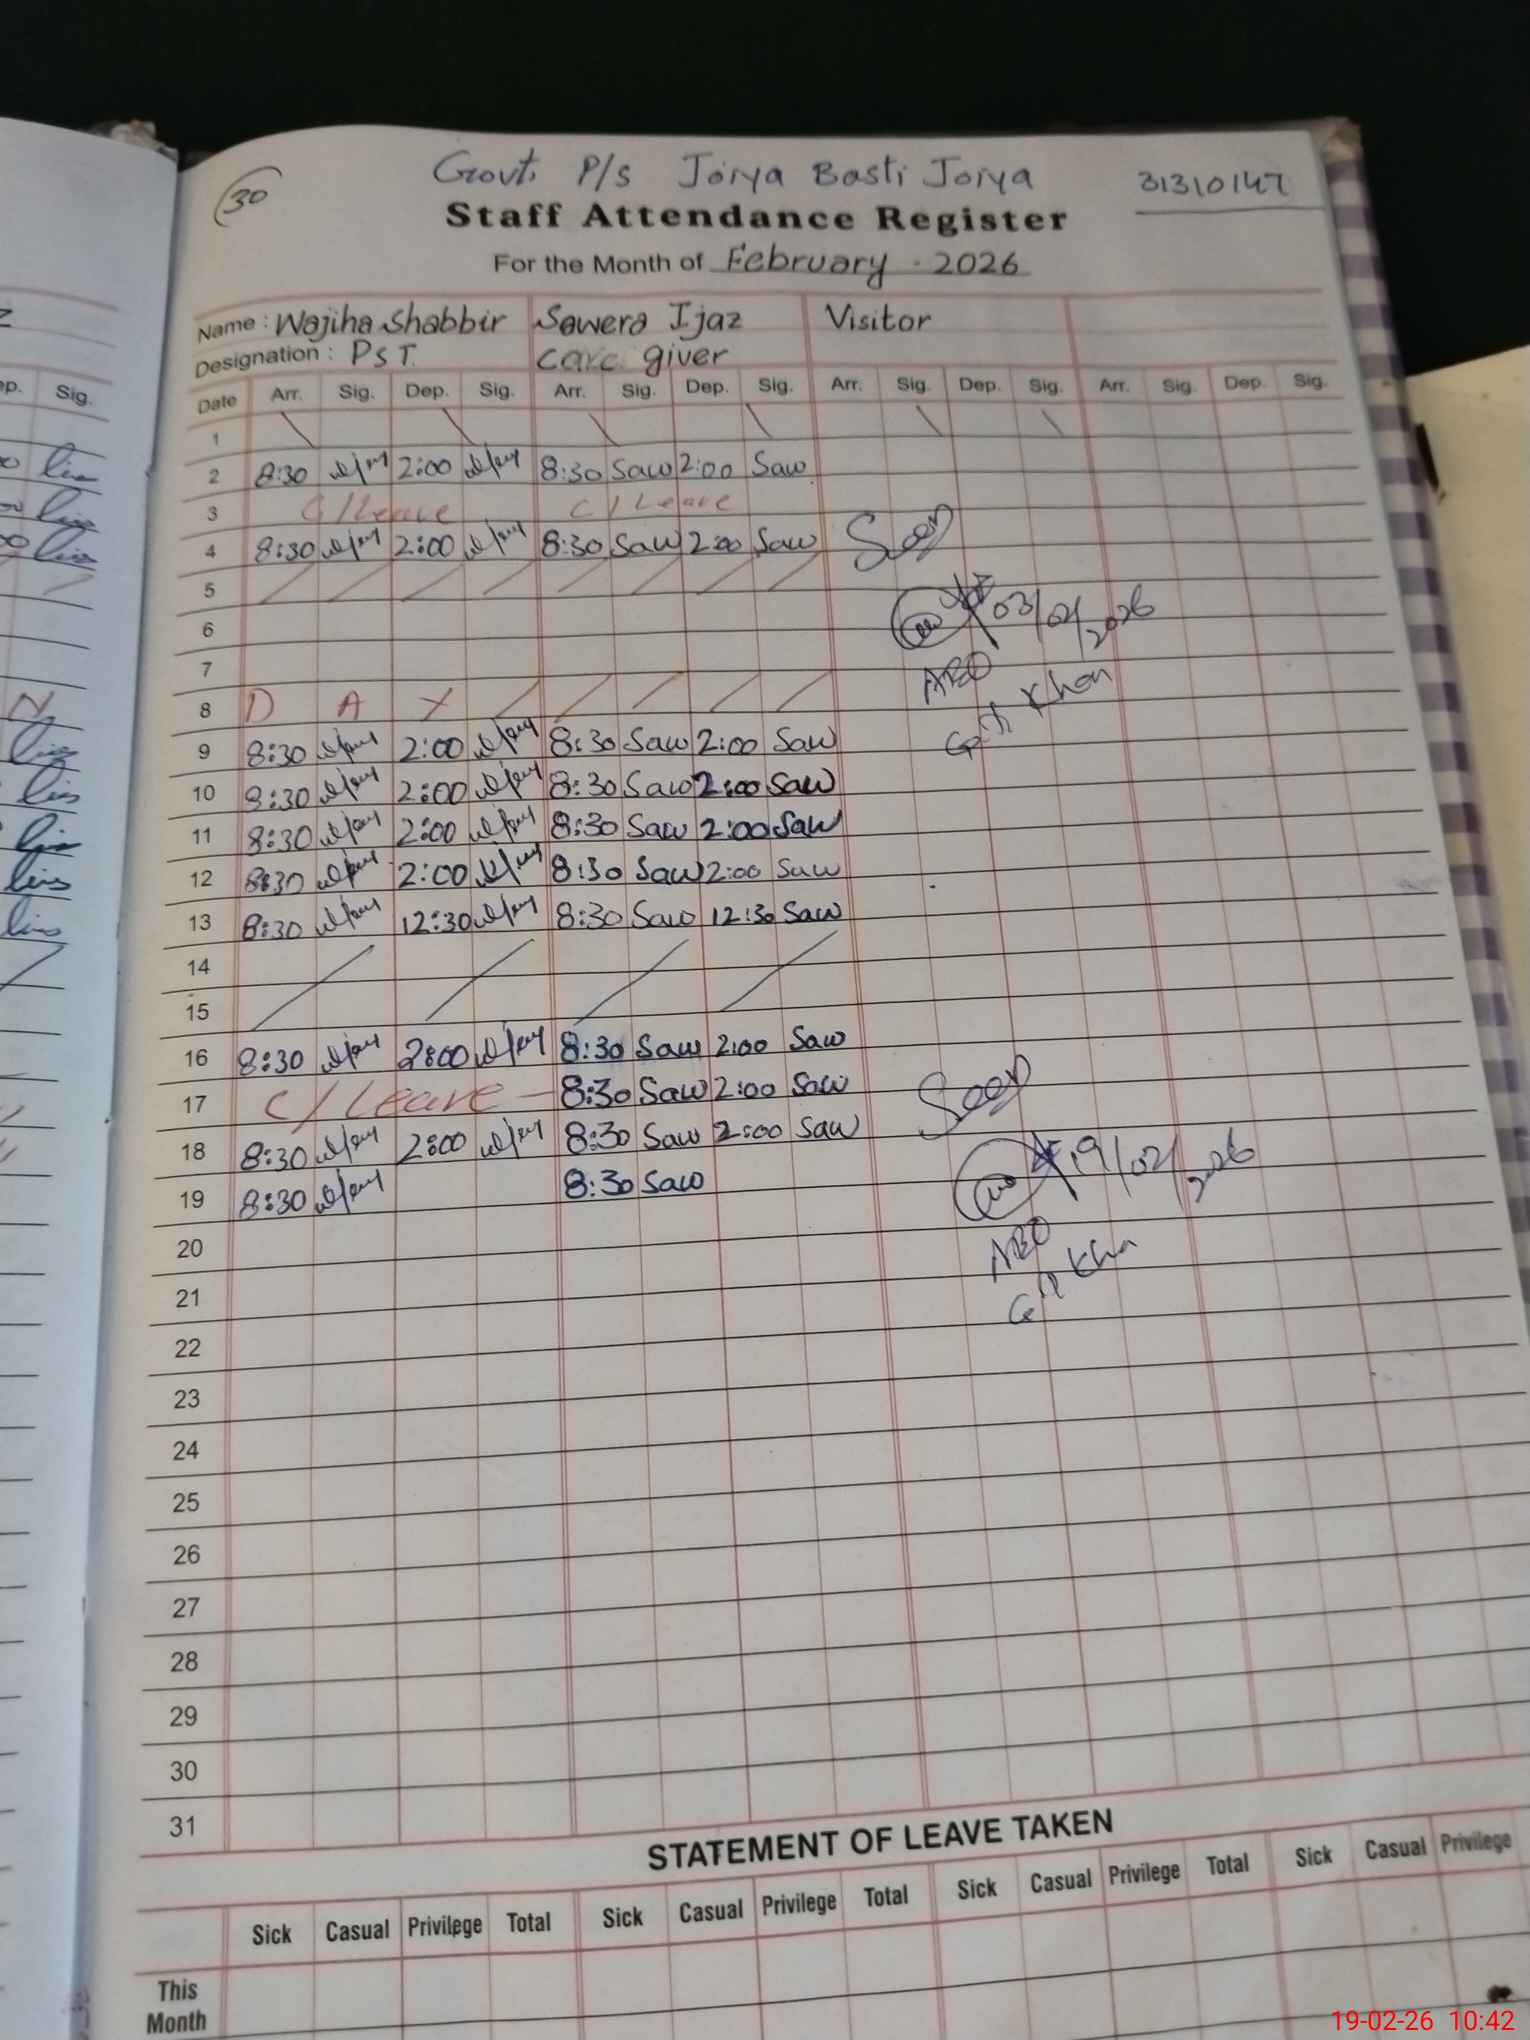 30
Govt. P/s Jorya Basti Jorya 31310147
Staff Attendance Register
For the Month of February - 2026
Name : Wajiha Shabbir Sawera Ijaz Visitor
Designation : PST. care giver
Date Arr. Sig. Dep. Sig. Arr. Sig. Dep. Sig. Arr. Sig. Dep. Sig. Arr. Sig. Dep. Sig.
1
2 8:30 2:00 8:30 Saw 2:00 Saw
3 C/Leave C/Leave
4 8:30 2:00 8:30 Saw 2:00 Saw Seen
5
03/02/2026
6
7 AEO
8 D A Y Khan
9 8:30 2:00 8:30 Saw 2:00 Saw
10 8:30 2:00 8:30 Saw 2:00 Saw
11 8:30 2:00 8:30 Saw 2:00 Saw
12 8:30 2:00 8:30 Saw 2:00 Saw
13 8:30 12:30 8:30 Saw 12:30 Saw
14
15
16 8:30 2:00 8:30 Saw 2:00 Saw
17 C/Leave 8:30 Saw 2:00 Saw Seen
18 8:30 2:00 8:30 Saw 2:00 Saw
19 8:30 8:30 Saw 19/02/2026
20 AEO
21
22
23
24
25
26
27
28
29
30
31
STATEMENT OF LEAVE TAKEN
Sick Casual Privilege Total Sick Casual Privilege Total Sick Casual Privilege Total Sick Casual Privilege
This
Month
19-02-26 10:42